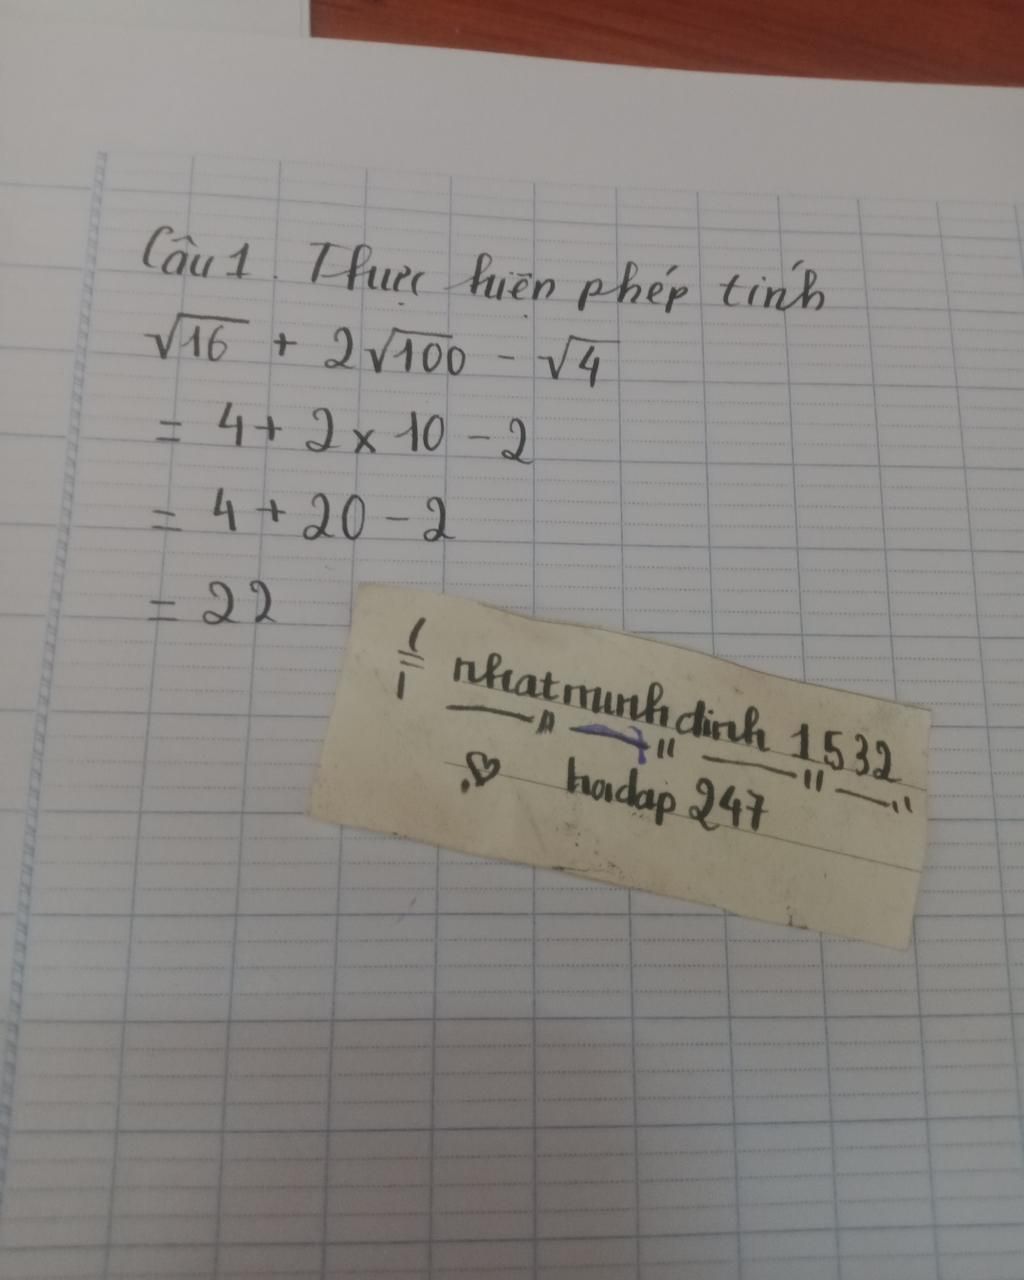 Câu 1. Thực hiện phép tính
√16 + 2√100 - √4
= 4 + 2 x 10 - 2
= 4 + 20 - 2
= 22
nhatminhdinh 1532
hoidap 247